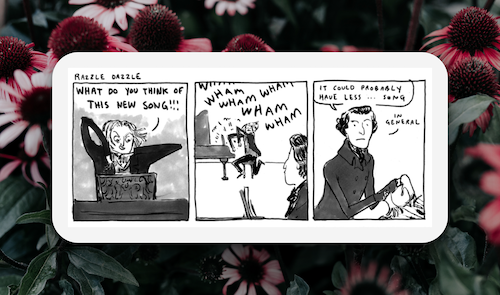 RAZZLE DAZZLE
WHAT DO YOU THINK OF
THIS NEW SONG!!!
WHAM
WHAM WHAM
WHAM WHAM WHAM
WHAM
WHAM
IT COULD PROBABLY
HAVE LESS ... SONG
IN
GENERAL